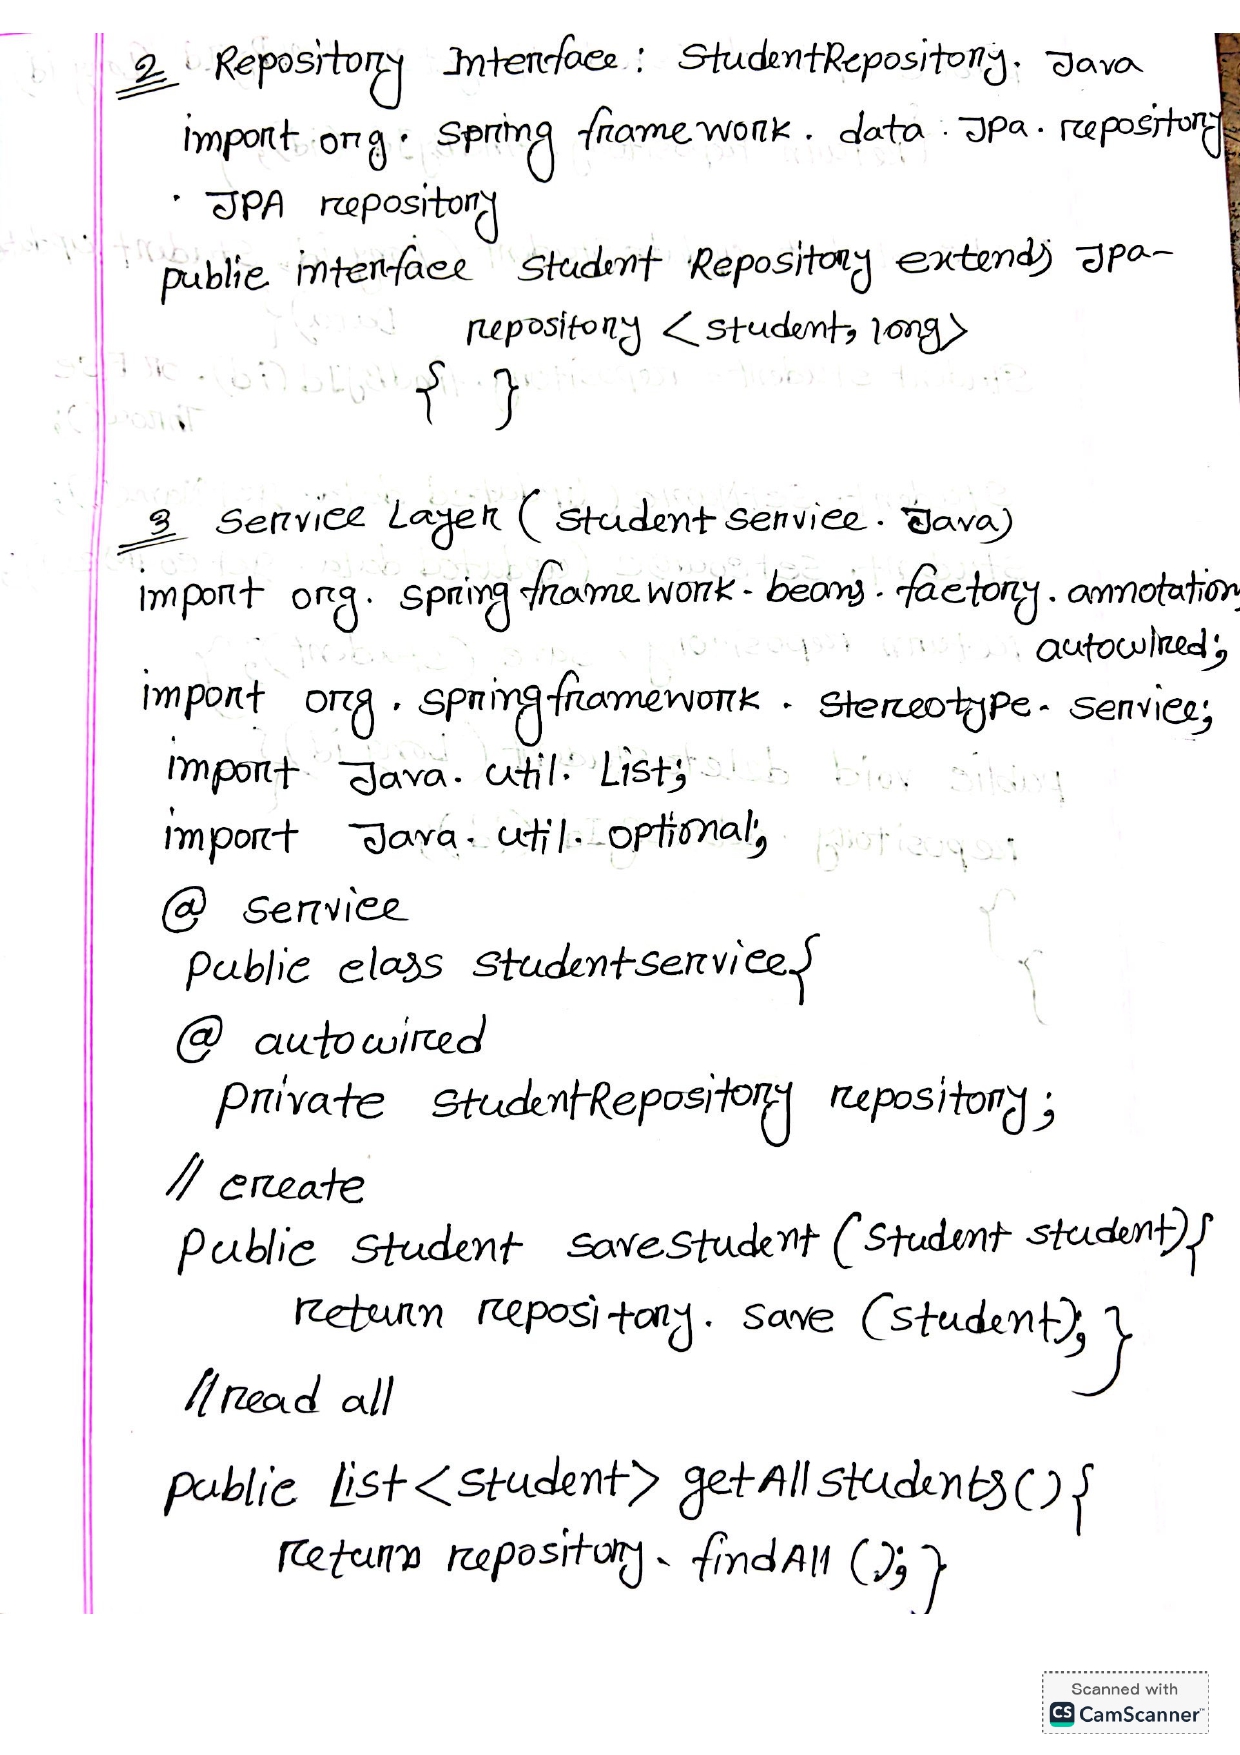 2 Repository Interface: StudentRepository. Java
import org. spring framework. data. Jpa. repository
. JPA repository
public interface Student Repository extends Jpa-
repository <student, long>
{ }
3 Service Layer (student service. Java)
import org. spring framework. beans. factory. annotation
autowired;
import org. springframework. stereotype. service;
import Java. util. List;
import Java. util. optional;
@ service
public class studentservice{
@ autowired
private studentRepository repository;
// create
public student savestudent (student student){
return repository. save (student); }
// read all
public List<student> getAllstudents(){
return repository. findAll (); }
Scanned with
CS CamScanner